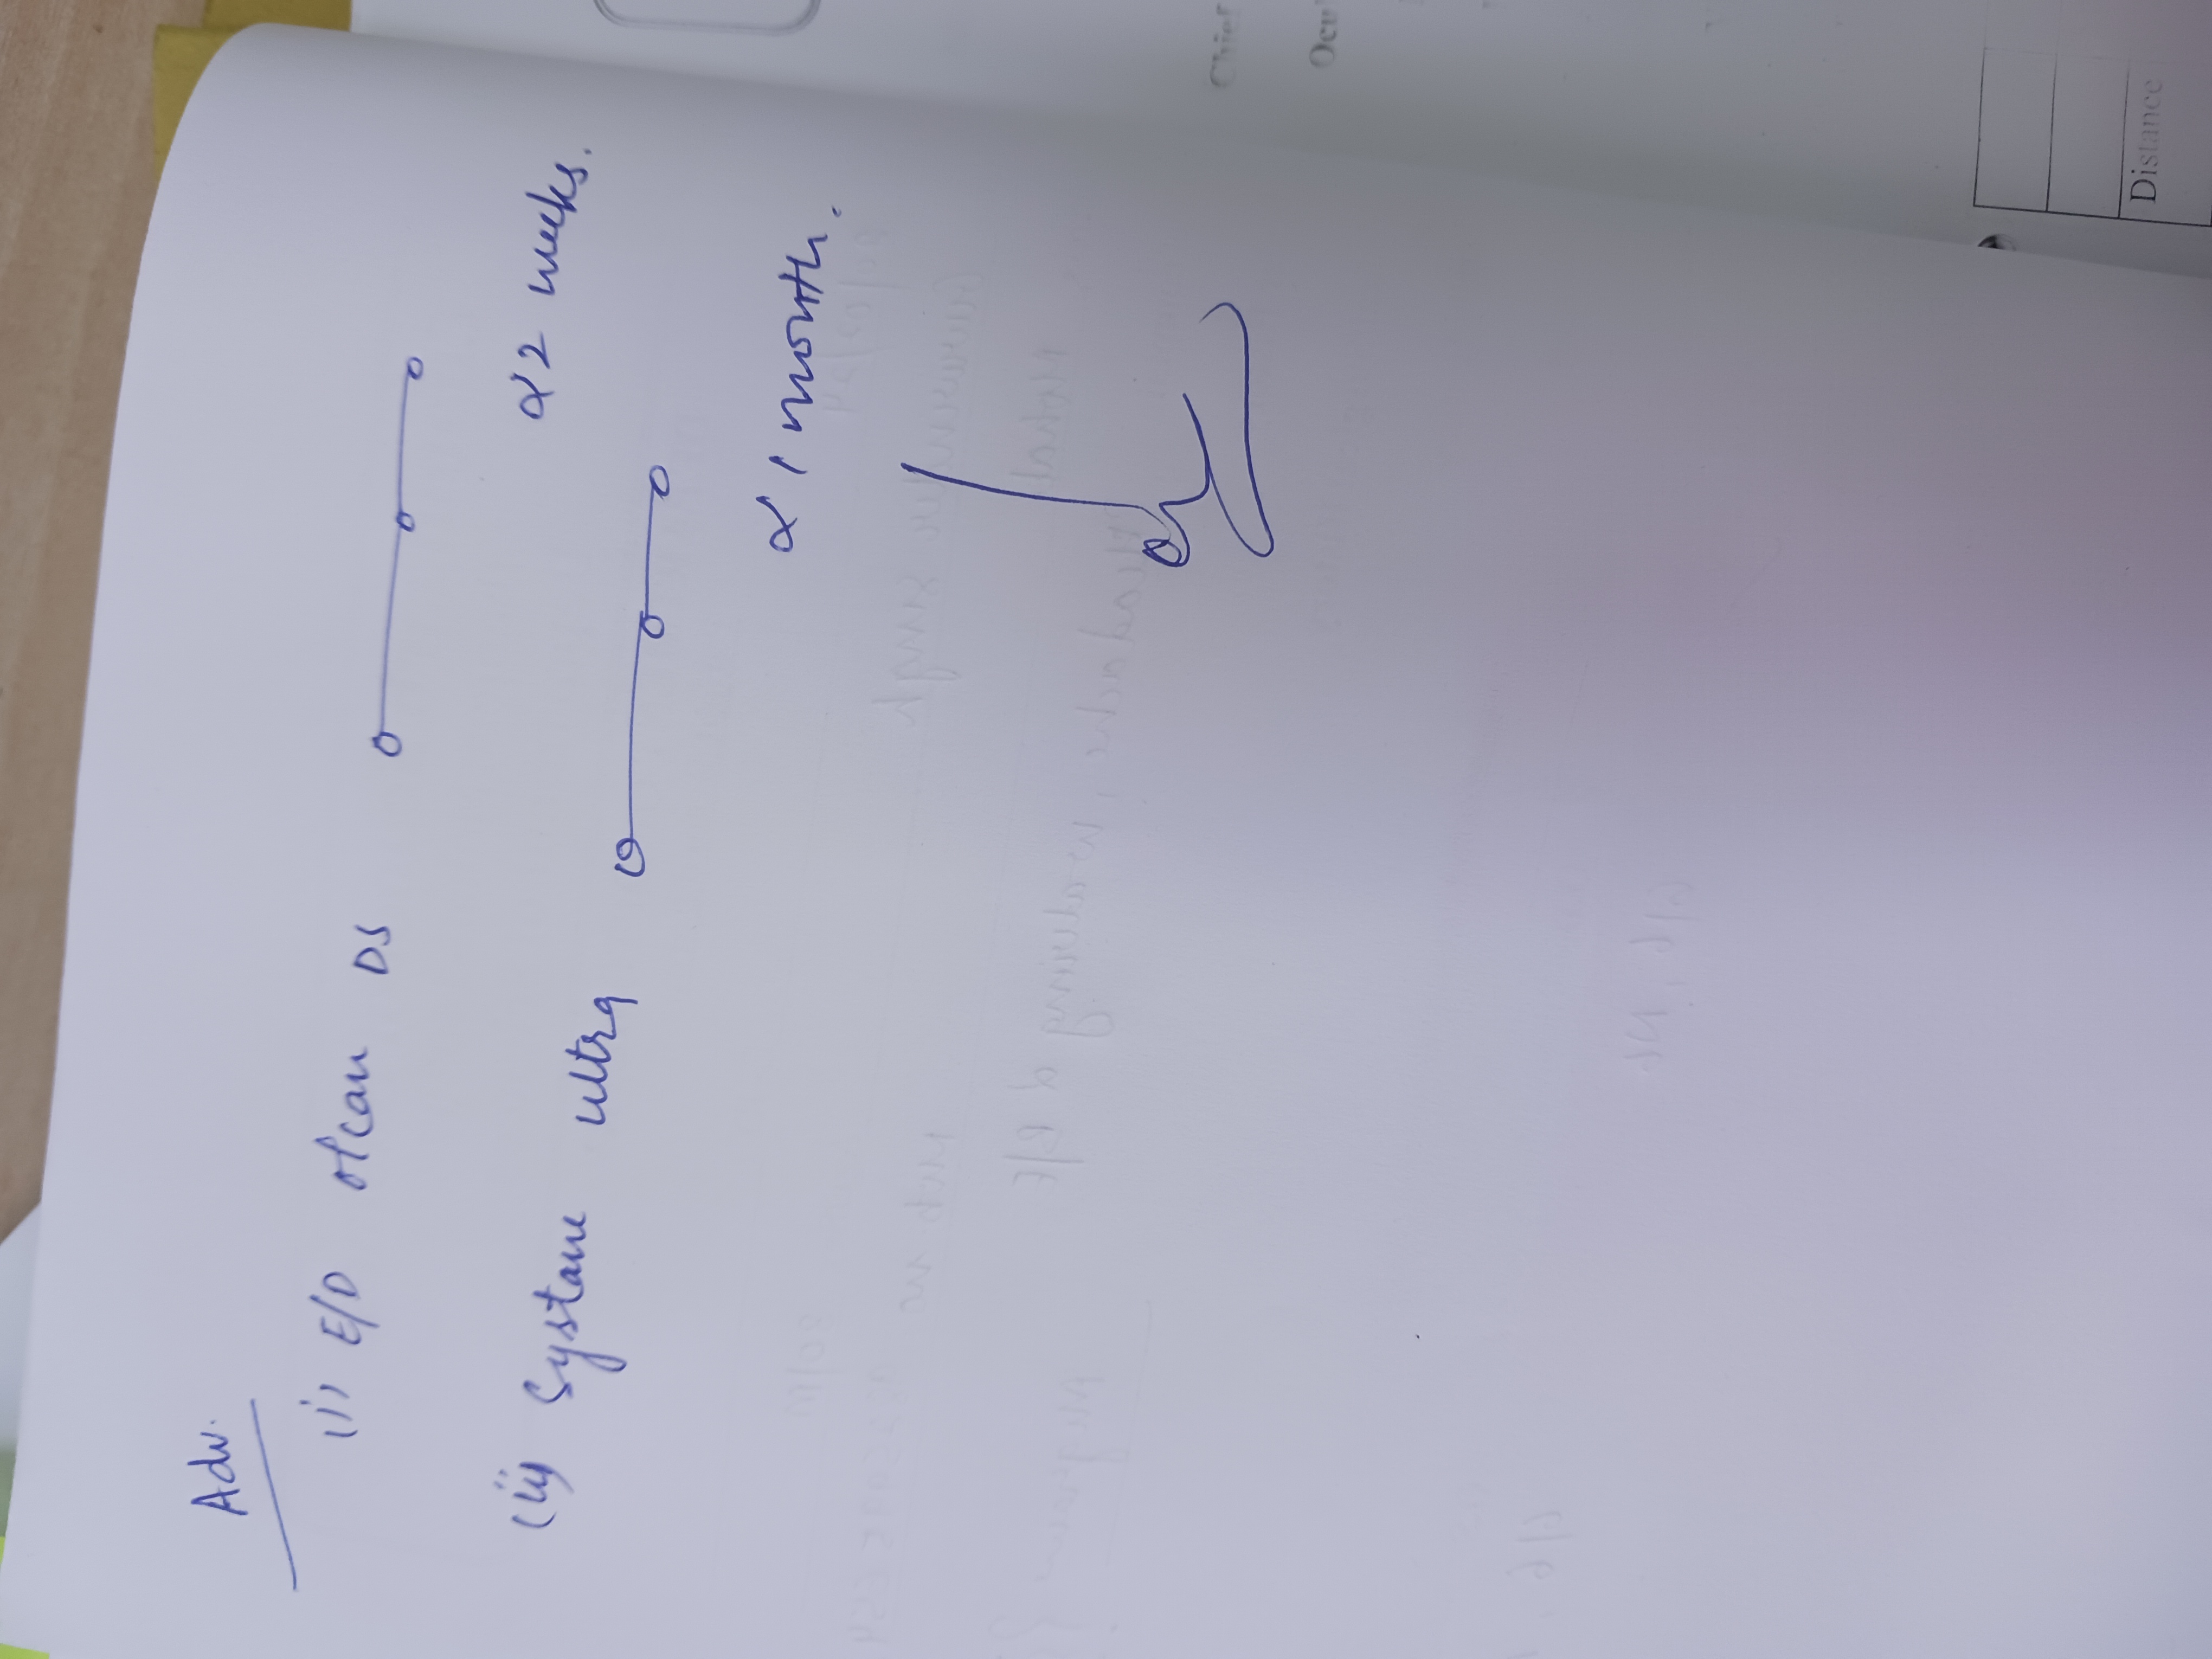 Adv.
(i) E/D olcan DS o—o—o
x 2 weeks.
(ii) Systane ultra o—o—o
x 1 month.
Chief
Distance